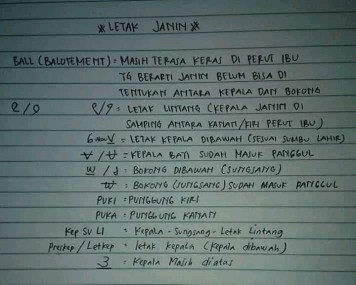 ※ LETAK JANIN ※
BALL (BALOTEMENT) : MASIH TERASA KERAS DI PERUT IBU
YG BERARTI JANIN BELUM BISA DI
TENTUKAN ANTARA KEPALA DAN BOKONG
= LETAK LINTANG (KEPALA JANIN DI
SAMPING ANTARA KANAN/KIRI PERUT IBU)
= LETAK KEPALA DIBAWAH (SESUAI SUMBU LAHIR)
= KEPALA BAYI SUDAH MASUK PANGGUL
= BOKONG DIBAWAH (SUNGSANG)
= BOKONG (SUNGSANG) SUDAH MASUK PANGGUL
PUKI = PUNGGUNG KIRI
PUKA = PUNGGUNG KANAN
Kep SU LI = Kepala - Sungsang - Letak Lintang
Preskep / Letkep = letak kepala (kepala dibawah)
3 = Kepala Masih diatas